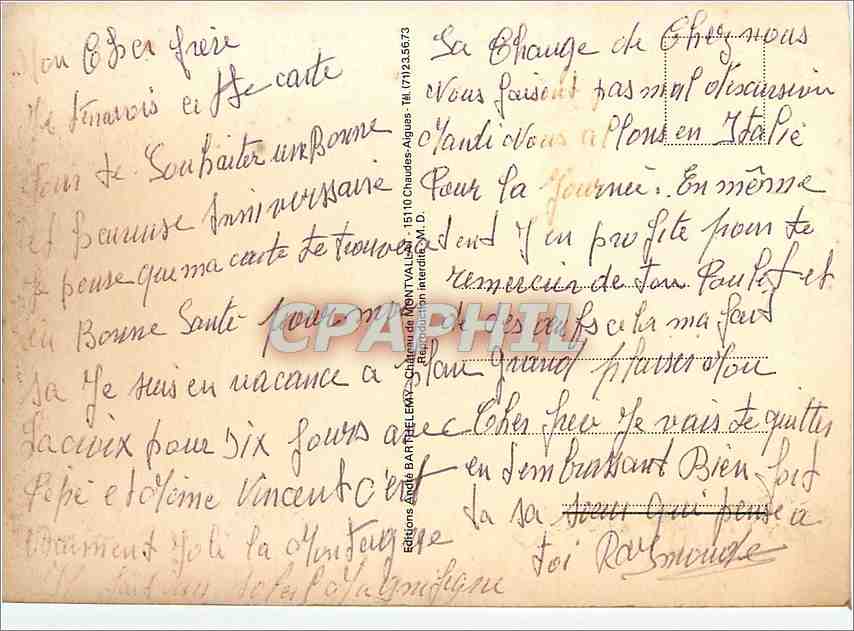 Mon Cher frère
Je t'envois cette carte
Pour te Souhaiter une Bonne
et heureuse Anniversaire
Je pense que ma carte te trouvera
en Bonne Santé pour moi
sa Je suis en vacance a Plan
Lacroix pour dix Jours avec
Pépé et Mème Vincent c'est
vraiment Joli la Montagne
Il fait un soleil Magnifique
Editions André BARTHELEMY - Château de MONTVALLAT - 15110 Chaudes-Aigues - Tél. (71) 23.56.73
Reproduction interdite - M. D.
Sa Change de Chez nous
Nous faisont pas mal d'excursion
Mardi Nous allons en Italie
Pour la Journée. En même
tent J'en profite pour te
remercier de ton Poulet et
de des œufs cela ma fait
grand plaisir Mon
Cher frère Je vais te quitter
en t'embrassant Bien fort
ta sœur qui pense a
toi Raymonde
CPAPHIL